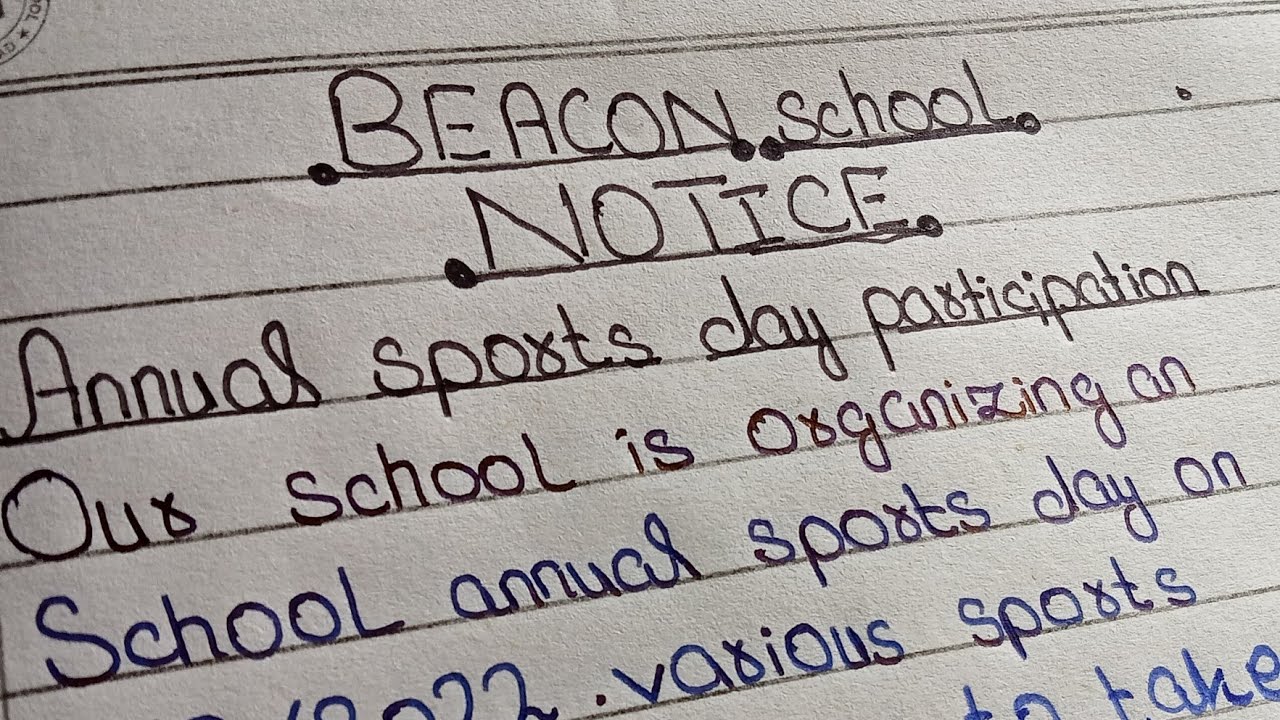 BEACON School
NOTICE
Annual sports day participation
Our school is organizing an
School annual sports day on
/2022. various sports
to take